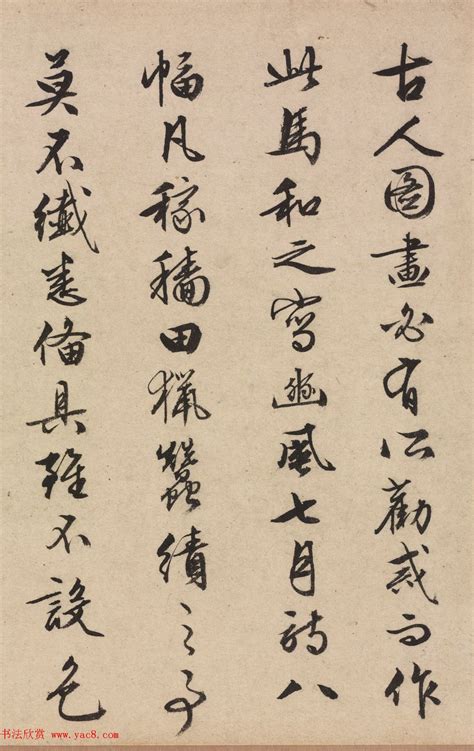 古人图畫必有所勸戒而作
此馬和之寫豳風七月詩八
幅凡稼穡田獵蠶績之事
莫不纖悉備具雖不設色
书法欣赏 www.yac8.com